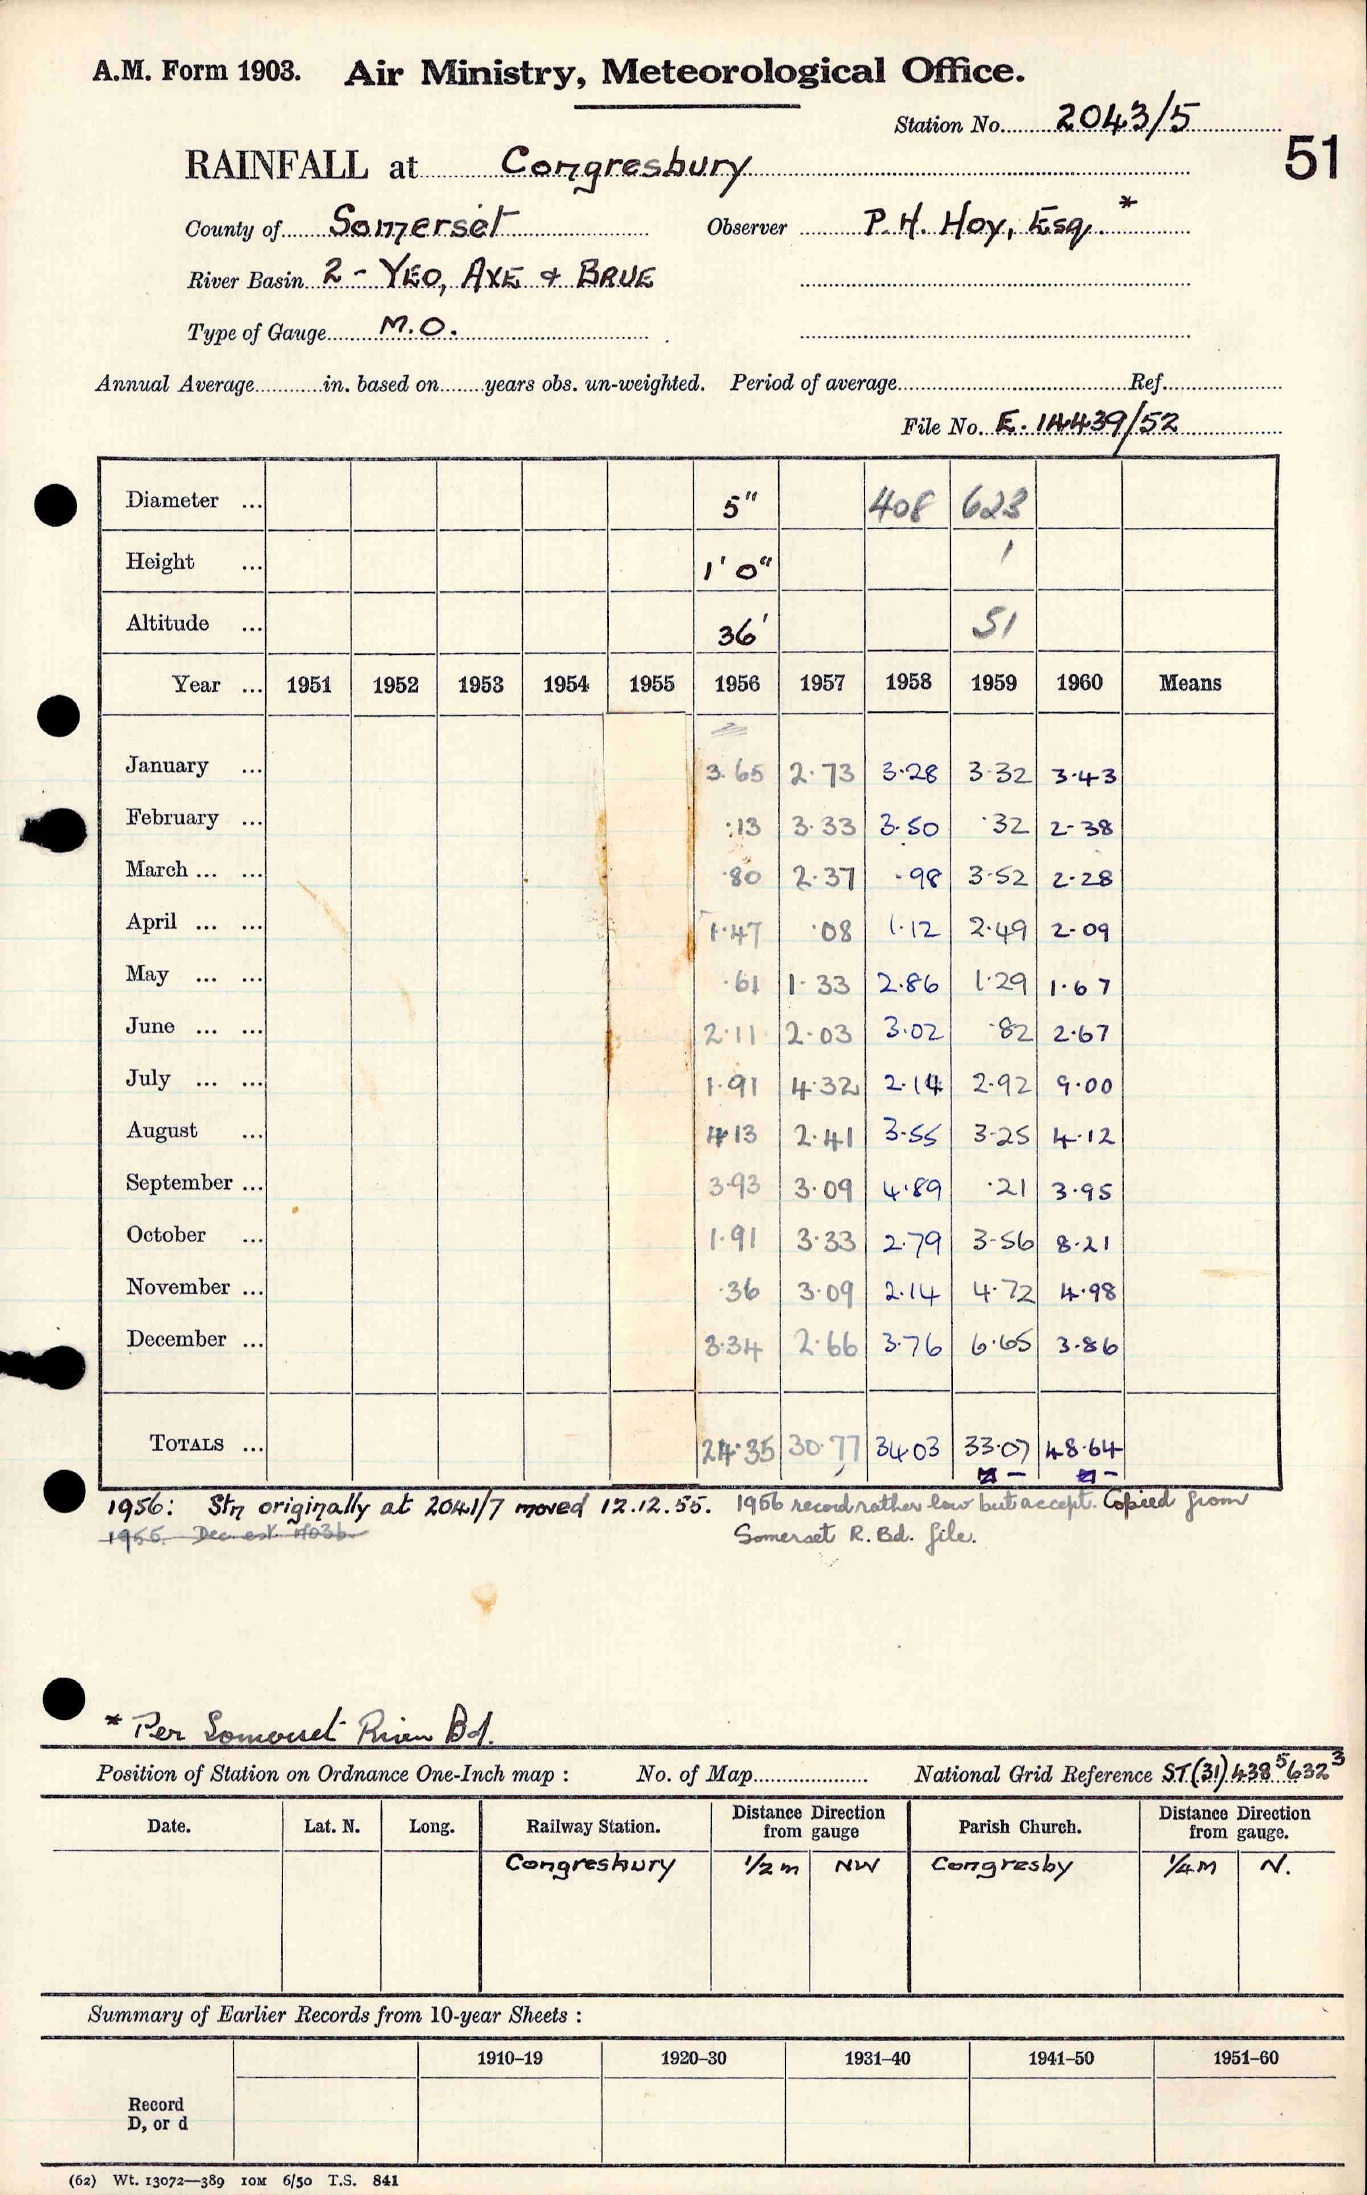 A.M. Form 1903. Air Ministry, Meteorological Office.
Station No. 2043/5
51
RAINFALL at Congresbury
County of Somerset Observer P. H. Hoy, Esq. *
River Basin 2 - YEO, AXE & BRUE
Type of Gauge M.O.
Annual Average in. based on years obs. un-weighted. Period of average Ref.
File No. E. 14439/52
Diameter ... 5" 408 623
Height ... 1' 0" 1
Altitude ... 36' 51
Year ... 1951 1952 1953 1954 1955 1956 1957 1958 1959 1960 Means
January ... 3.65 2.73 3.28 3.32 3.43
February ... .13 3.33 3.50 .32 2.38
March ... ... .80 2.37 .98 3.52 2.28
April ... ... 1.47 .08 1.12 2.49 2.09
May ... ... .61 1.33 2.86 1.29 1.67
June ... ... 2.11 2.03 3.02 .82 2.67
July ... ... 1.91 4.32 2.14 2.92 9.00
August ... 4.13 2.41 3.55 3.25 4.12
September ... 3.93 3.09 4.89 .21 3.95
October ... 1.91 3.33 2.79 3.56 8.21
November ... .36 3.09 2.14 4.72 4.98
December ... 3.34 2.66 3.76 6.65 3.86
TOTALS ... 24.35 30.77 34.03 33.07 48.64
1956: Stn originally at 2041/7 moved 12.12.55. 1956 record rather low but accept. Copied from
1955. Dec est
Somerset R. Bd. file.
* Per Somerset River Bd.
Position of Station on Ordnance One-Inch map : No. of Map National Grid Reference ST(31) 438⁵ 632³
Date. Lat. N. Long. Railway Station. Distance Direction from gauge Parish Church. Distance Direction from gauge.
Congresbury 1/2 m NW Congresby 1/4 M N.
Summary of Earlier Records from 10-year Sheets :
1910–19 1920–30 1931–40 1941–50 1951–60
Record
D, or d
(62) Wt. 13072—389 10M 6/50 T.S. 841